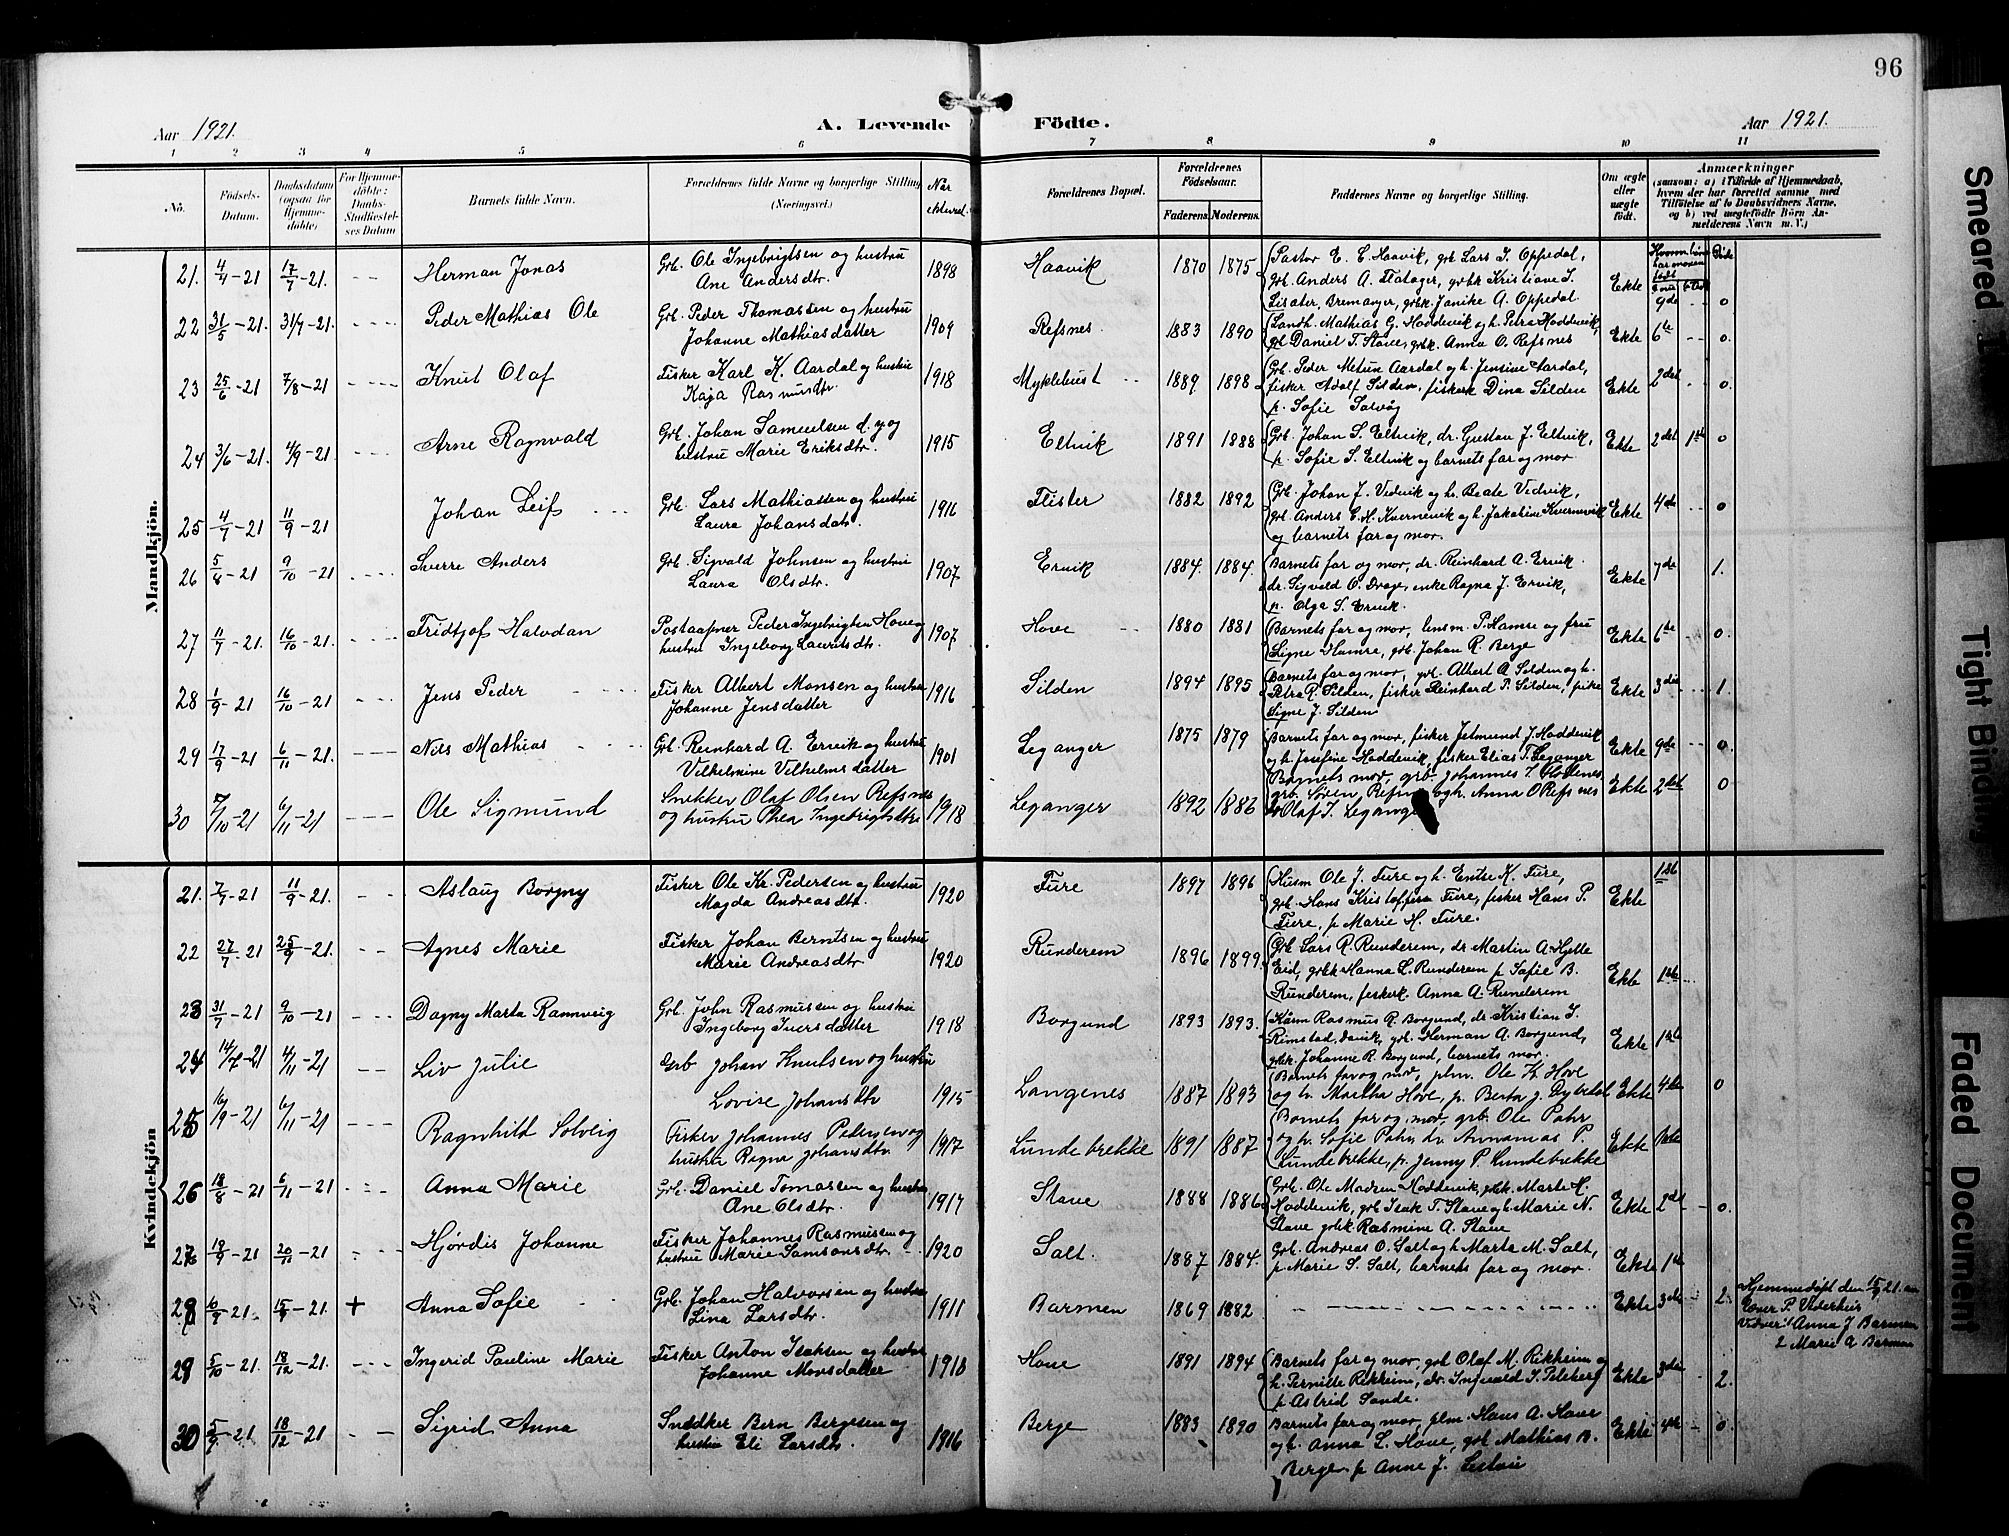 96
Aar 1921.
A. Levende Födte.
Aar 1921.
1 2 3 4 5 6 7 8 9 10 11
No. Födsels-Datum. Daabsdatum (ogsaa for Hjemme-döbte) For Hjemme-döbte: Daabs-Stadfæstel-ses Datum Barnets fulde Navn. Forældrenes fulde Navne og borgerlige Stilling (Næringsvei.) Når Forældrenes Bopæl. Forældrenes Födselsaar. Faderens Moderens. Faddernes Navne og borgerlige Stilling. Om ægte eller uægte födt.
Anmærkninger
(saasom: a) i Tilfælde af Hjemmedaab,
hvem der har forrettet samme, med
Tilföielse af to Daabsvidners Navne,
og b) ved uægtefödte Börn An-
melderens Navn m. V.)
Mandkjön.
21. 4/4-21 17/7-21. -- Herman Jonas Grb. Ole Ingebrigtsen og hustru
Ane Andersdtr. 1898 Haavik 1870 1875 Pastor E. E. Haavik, grb Lars I. Oppedal,
grb Anders A. Flatager, grbk Kristiane S.
Lisæter, Bremanger, grbk. Janike A. Oppedal. Ekte 9de 0
22 31/5-21. 31/7-21. --- Peder Mathias Ole Grb. Peder Thomassen og hustru
Johanne Mathiasdatter 1909 Refsnes. 1883 1890 Landh. Mathias G. Hoddevik og h. Petra Hoddevik,
grb Daniel T. Stave, grbk. Anna O. Refsnes Ekte 6te -- 0.
23 25/6-21 7/8-21 ---- Knut Olaf Fisker Karl K. Aardal og hustru
Kaja Rasmusdtr. 1918 Myklebust -- 1889 1898 Grb. Peder Metun Aardal og h. Jensine Aardal,
fisker Adolf Silden, fiskerk Dina Silden
p. Sofie Salvåg Ekte 2det -- 0.
24 3/6-21. 4/9-21. ---- Arne Ragnvald Grb. Johan Samuelsen d.y og
hustru Marie Eriksdtr. 1915 Eltvik 1891 1888 Grb. Johan S. Eltvik, dr. Gustav J. Eltvik,
p. Sofie S. Eltvik og barnets far og mor. Ekte 2det 1ste 0
25 4/7-21 11/9-21 Johan Leif --- Grb. Lars Mathiassen og hustru
Laura Johansdatr. 1916 Flister 1882 1892 Grb. Johan J. Vedvik og h. Beate Vedvik,
grb. Anders E. H. Kvernevik og h. Jakobine Kvernevik
og barnets far og mor. Ekte 4de -- 0
26 5/8-21 9/10-21 ---- Sverre Anders Grb. Sigvald Johnsen og hustru
Laura Olsdtr. 1907 Ervik 1884. 1884. Barnets far og mor, dr. Reinhard A. Ervik.
dr. Sigvald O. Drage, enke Ragna J. Ervik,
p. Olga S. Ervik. Ekte 7de 1.
27 11/7-21. 16/10-21. ---- Fridtjof Halvdan Postaapner Peder Ingebrigtsen Hove og
hustru Ingeborg Lauritsdtr. 1907 Hove -- 1880 1881 Barnets far og mor, lensm. P. Hamre og fru
Signe Hamre, grb. Johan R. Berge Ekte 6te -- 0.
28 1/9-21 16/10-21 --- Jens Peder Fisker Albert Monsen og hustru
Johanne Jensdatter 1916 Silden 1894 1895 Barnets far og mor, grb. Albert A. Silden og h.
Petra R. Silden, fisker Reinhard P. Silden, pike
Signe J. Silden Ekte 3die --- 1.
29 17/9-21 6/11-21. --- Nils Mathias Grb. Reinhard A. Ervik og hustru
Vilhelmine Vilhelmsdatter 1901 Leganger 1875 1879 Barnets far og mor, fisker Jetmund J. Hoddevik
og h. Josefine Hoddevik, fisker Elias T. Leganger Ekte 9de --- 0.
30 7/10-21 6/11-21 --- Ole Sigmund Snekker Olaf Olsen Refsnes
og hustru Thea Ingebrigtsdtr. 1918 Leganger 1892 1886 Barnets mor, grb. Johannes I. Hodenes,
grb. Søren Refsnes og h. Anna O Refsnes
Olaf I. Leganger Ekte 2det 0
Kvindekjön
21. 7/7-21 11/9-21. -- Aslaug Borgny Fisker Ole Kr. Pedersen og hustru
Magda Andreasdtr. 1920 Fure 1897 1896 Husm Ole J. Fure og h. Entse K. Fure,
grb. Hans Kristoffersen Fure, fisker Hans P.
Fure, p Marie H. Fure. Ekte 1ste
22 27/7-21 25/9-21. -- Agnes Marie Fisker Johan Berntsen og hustru
Marie Andreasdtr 1920 Runderem 1896 1899. Grb Lars R. Runderem, dr Martin A. Hjelle
Eid, grbk Hanna L. Runderem p Sofie B.
Runderem, fiskerk. Anna A. Runderem Ekte 1ste
23 31/7-21 9/10-21 --- Dagny Marta Rannveig Grb. John Rasmussen og hustru
Ingeborg Iversdatter 1918 Borgund 1893 1893. Kårm Rasmus R. Borgund, dr Kristian I.
Rimstad, Davik, grb. Herman A. Borgund,
grbk. Johanne R. Borgund, barnets mor. Ekte 1ste
24 14/7-21 4/11-21 -- Liv Julie Grb Johan Knutsen og hustru
Lovise Johansdtr 1915 Langenes 1887 1893 Barnets far og mor, plm. Ole K. Hove
og h. Martha Hove, p. Berta J. Dybedal Ekte 4de 0
25 16/9-21 6/11-21 --- Ragnhild Solveig Fisker Johannes Pedersen og
hustru Ragna Johansdtr. 1917 Lundebrekke 1891 1887 Barnets far og mor, grb. Ole Pahr
og h. Sofie Pahr, dr Annanias P.
Lundebrekke, p. Jenny P. Lundebrekke Ekte 1ste
26 18/8-21 6/11-21 --- Anna Marie Grb. Daniel Tomassen og hustru
Ane Olsdtr. 1917 Stave 1888 1886 Grb. Ole Madsen Hoddevik, grbk. Marte H.
Hoddevik, grb Isak T. Stave og h. Marie N.
Stave grbk Rasmine A. Stave Ekte 2det -- 0.
27 19/9-21 20/11-21 --- Hjørdis Johanne Fisker Johannes Rasmussen og
hustru Marie Samsonsdtr. 1920 Salt. 1887 1884. Grb. Andreas O. Salt og h Marta M. Salt,
p Marie S. Salt, barnets far og mor. Ekte 1ste
28 10/9-21 15/9-21. + Anna Sofie Grb. Johan Halvorsen og hustru
Lina Larsdtr. 1911 Barmen 1869 1882 Ekte 3die -- 2. Hjemmedøpt den 15/9 21. av
P. Viderhus
Vidner: 1 Anna J Barmen
2 Marie A Barmen
29 5/10-21. 18/12-21. --- Ingerid Pauline Marie Fisker Anton Isaksen og hustru
Johanne Monsdatter 1918 Hove 1891 1894 Barnets far og mor, grb Olaf M. Rikheim og
h. Pernille Rikheim, dr. Ingvald S. Pileberg
p Astrid Sande. Ekte 3die - 2.
30 5/9-21 18/12-21 -- Sigrid Anna Snedker Bern Bergesen og
hustru Eli Larsdtr. 1916 Berge 1883 1890 Barnets far og mor, plm. Hans A. Hove
og h. Anna L. Hove, grb Mathias B.
Berge p Anne J. Ekte 4de -- 0.
Smeared
Tight Binding
Faded Document